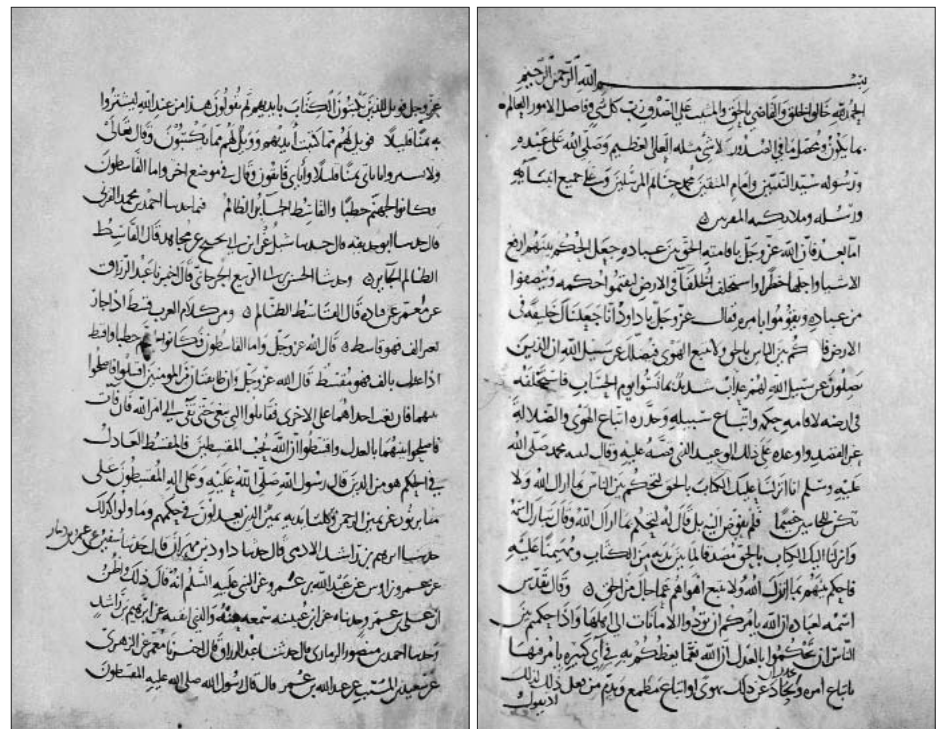 بسم الله الرحمن الرحيم
الحمد لله خالق الخلق والقاضي بالحق والمثيب على الصدق رب كل شي وفاصل الامور العالم
بما يكون ومحصل ما في الصدور لا شي مثله العلي العظيم وصلى الله على عبده
ورسوله سيد النبيين وامام المتقين محمد خاتم المرسلين وعلى جميع انبيائه
ورسله وملائكته المقربين
اما بعد فان الله عز وجل باقامته الحق بين عباده جعل الحكم بينهم ارفع
الاشيا واجلها خطرا واستخلف الخلفا في الارض ليقيموا حكمه وينصفوا
من عباده ويقوموا بامره فقال عز وجل يا داود انا جعلناك خليفة في
الارض فاحكم بين الناس بالحق ولا تتبع الهوى فيضلك عن سبيل الله ان الذين
يضلون عن سبيل الله لهم عذاب شديد بما نسوا يوم الحساب فاستخلفه
في ارضه لاقامه حكمه واتباع سبيله وحذره اتباع الهوى والضلالة
عن القصد واوعده على ذلك الوعيد الذي قصه عليه وقال لنبيه محمد صلى الله
عليه وسلم انا انزلنا عليك الكتاب بالحق لتحكم بين الناس بما اراك الله ولا
تكن للخائنين خصيما فلم يفوض اليه بل قال له لتحكم بما اراك الله وقال تبارك اسمه
وانزلنا اليك الكتاب بالحق مصدقا لما بين يديه من الكتاب ومهيمنا عليه
فاحكم بينهم بما انزل الله ولا تتبع اهواهم عما جاك من الحق وقال تقدس
اسمه لعباده ان الله يامركم ان تودوا الامانات الى اهلها واذا حكمتم بين
الناس ان تحكموا بالعدل ان الله نعما يعظكم به في آي كثيرة يامر فيها
باتباع امره وحذر ان يحاد عن ذلك بهوى او اتباع مطمع ويذم من فعل ذلك
عز وجل فويل للذين يكتبون الكتاب بايديهم ثم يقولون هذا من عند الله ليشتروا
به ثمنا قليلا فويل لهم مما كتبت ايديهم وويل لهم مما يكسبون وقال تعالى
ولا تشتروا باياتي ثمنا قليلا واياي فاتقون وقال في موضع اخر واما القاسطون
فكانوا لجهنم حطبا والقاسط الجاير الظالم فيما حدثنا احمد بن محمد
قال حدثنا ابو حذيفه قال حدثنا شبل عن ابن ابي نجيح عن مجاهد قال القاسط
الظالم الجاير وحدثنا الحسن بن ابي الربيع الجرجاني قال اخبرنا عبد الرزاق
عن معمر عن قتاده قال القاسط الظالم ومن كلام العرب قسط اذا جار
بغير الف فهو قاسط قال الله عز وجل واما القاسطون فكانوا لجهنم حطبا واقسط
اذا عدل بالف فهو مقسط قال الله عز وجل وان طايفتان من المومنين اقتتلوا فاصلحوا
بينهما فان بغت احداهما على الاخرى فقاتلوا التي تبغي حتى تفي الى امر الله فان فات
فاصلحوا بينهما بالعدل واقسطوا ان الله يحب المقسطين فالمقسط العادل
في الحكم هو من الذين قال رسول الله صلى الله عليه وعلى اله المقسطون على
منابر نور عن يمين الرحمن وكلتا يديه يمين الذين يعدلون في حكمهم وما ولوا كذلك
حدثنا ابرهيم بن راشد الادمي قال حدثنا داود بن مهران قال حدثنا سفين عن عمرو بن دينار
عن عمرو بن اوس عن عبد الله بن عمرو عن النبي عليه السلم انه قال ذلك
وحدثنا احمد بن منصور الرمادي قال حدثنا عبد الرزاق قال اخبرنا معمر عن الزهري
عن سعيد بن المسيب عن عبد الله بن عمر قال قال رسول الله صلى الله عليه المقسطون